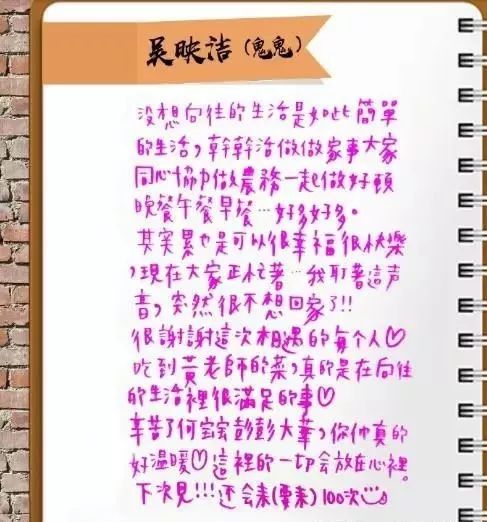 吴映洁（鬼鬼）
没想向往的生活是如此簡單
的生活，幹幹活做做家事大家
同心協力做農務一起做好頓
晚餐午餐早餐…好多好多。
其实累也是可以很幸福很快樂
，現在大家正忙著…我聽著這声
音，突然很不想回家了!!
很謝謝這次相遇的每个人♡
吃到黃老師的菜，真的是在向往
的生活裡很滿足的事♡
辛苦了何宝宝彭彭大華，你们真的
好温暖♡這裡的一切会放在心裡。
下次見!!!还会來(要來)100次